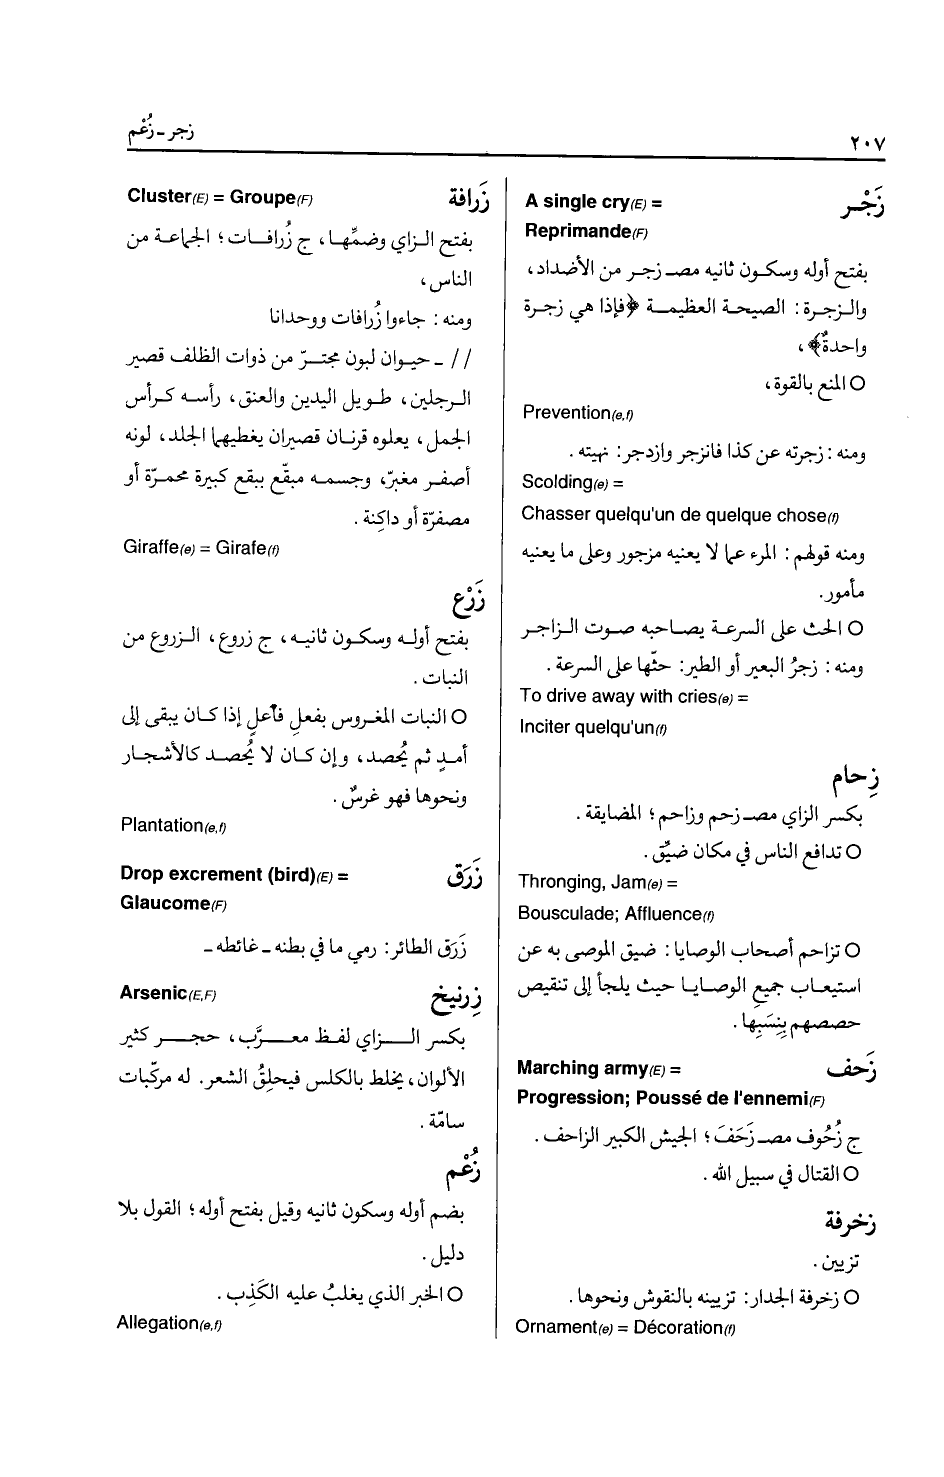 ٢٠٧
زجر ـ زُعْم
زَجْر
A single cry(E) =
Reprimande(F)
بفتح أوله وسكون ثانيه مصـ زجر من الأضداد،
والزجرة: الصيحة العظيمة ﴿فإذا هي زجرة
واحدةٌ﴾،
O المنع بالقوة،
Prevention(e,f)
ومنه: زجرته عن كذا فانزجر وازدجر: نهيته.
Scolding(e) =
Chasser quelqu'un de quelque chose(f)
ومنه قولهم: المرء عما لا يعنيه مزجور وعلى ما يعنيه
مأمور.
O الحث على السرعة يصاحبه صوت الزاجر
ومنه: زجرُ البعير أو الطير: حثّها على السرعة.
To drive away with cries(e) =
Inciter quelqu'un(f)
زِحام
بكسر الزاي مصـ زحم وزاحم؛ المضايقة.
O تدافع الناس في مكان ضيّق.
Thronging, Jam(e) =
Bousculade; Affluence(f)
O تزاحم أصحاب الوصايا: ضيق الموصى به عن
استيعاب جميع الوصايا حيث يلجأ إلى تنقيص
حصصهم بِنِسَبِها.
زَحف
Marching army(E) =
Progression; Poussé de l'ennemi(F)
ج زُحُوف مصـ زَحَفَ؛ الجيش الكبير الزاحف.
O القتال في سبيل الله.
زخرفة
تزيين.
O زخرفة الجدار: تزيينه بالنقوش ونحوها.
Ornament(e) = Décoration(f)
زَرافة
Cluster(E) = Groupe(F)
بفتح الزاي وضمِّها، ج زُرافات؛ الجماعة من
الناس،
ومنه: جاءوا زُرافات ووحدانا
// ـ حيوان لبون مجترّ من ذوات الظلف قصير
الرجلين، طويل اليدين والعنق، رأسه كرأس
الجمل، يعلوه قرنان قصيران يغطيها الجلد، لونه
أصفر مغبرّ، وجسمه مبقّع ببقع كبيرة محمرّة أو
مصفرّة أو داكِنة.
Giraffe(e) = Girafe(f)
زَرْع
بفتح أوله وسكون ثانيه، ج زروع، الزروع من
النبات.
O النبات المغروس بفعلِ فاَعلٍ إذا كان يبقى إلى
أمدٍ ثم يُحصد، وإن كان لا يُحصد كالأشجار
ونحوها فهو غرسٌ.
Plantation(e,f)
زَرَق
Drop excrement (bird)(E) =
Glaucome(F)
زَرَق الطائر: رمي ما في بطنه ـ غائطه ـ
زِرنيخ
Arsenic(E,F)
بكسر الزاي لفظ معرَّب، حجر كثير
الألوان، يخلط بالكلس فيحلِقُ الشعر. له مركّبات
سامّة.
زُعْم
بضم أوله وسكون ثانيه وقيل بفتح أوله؛ القول بلا
دليل.
O الخبر الذي يغلبُ عليه الكَذِب.
Allegation(e,f)